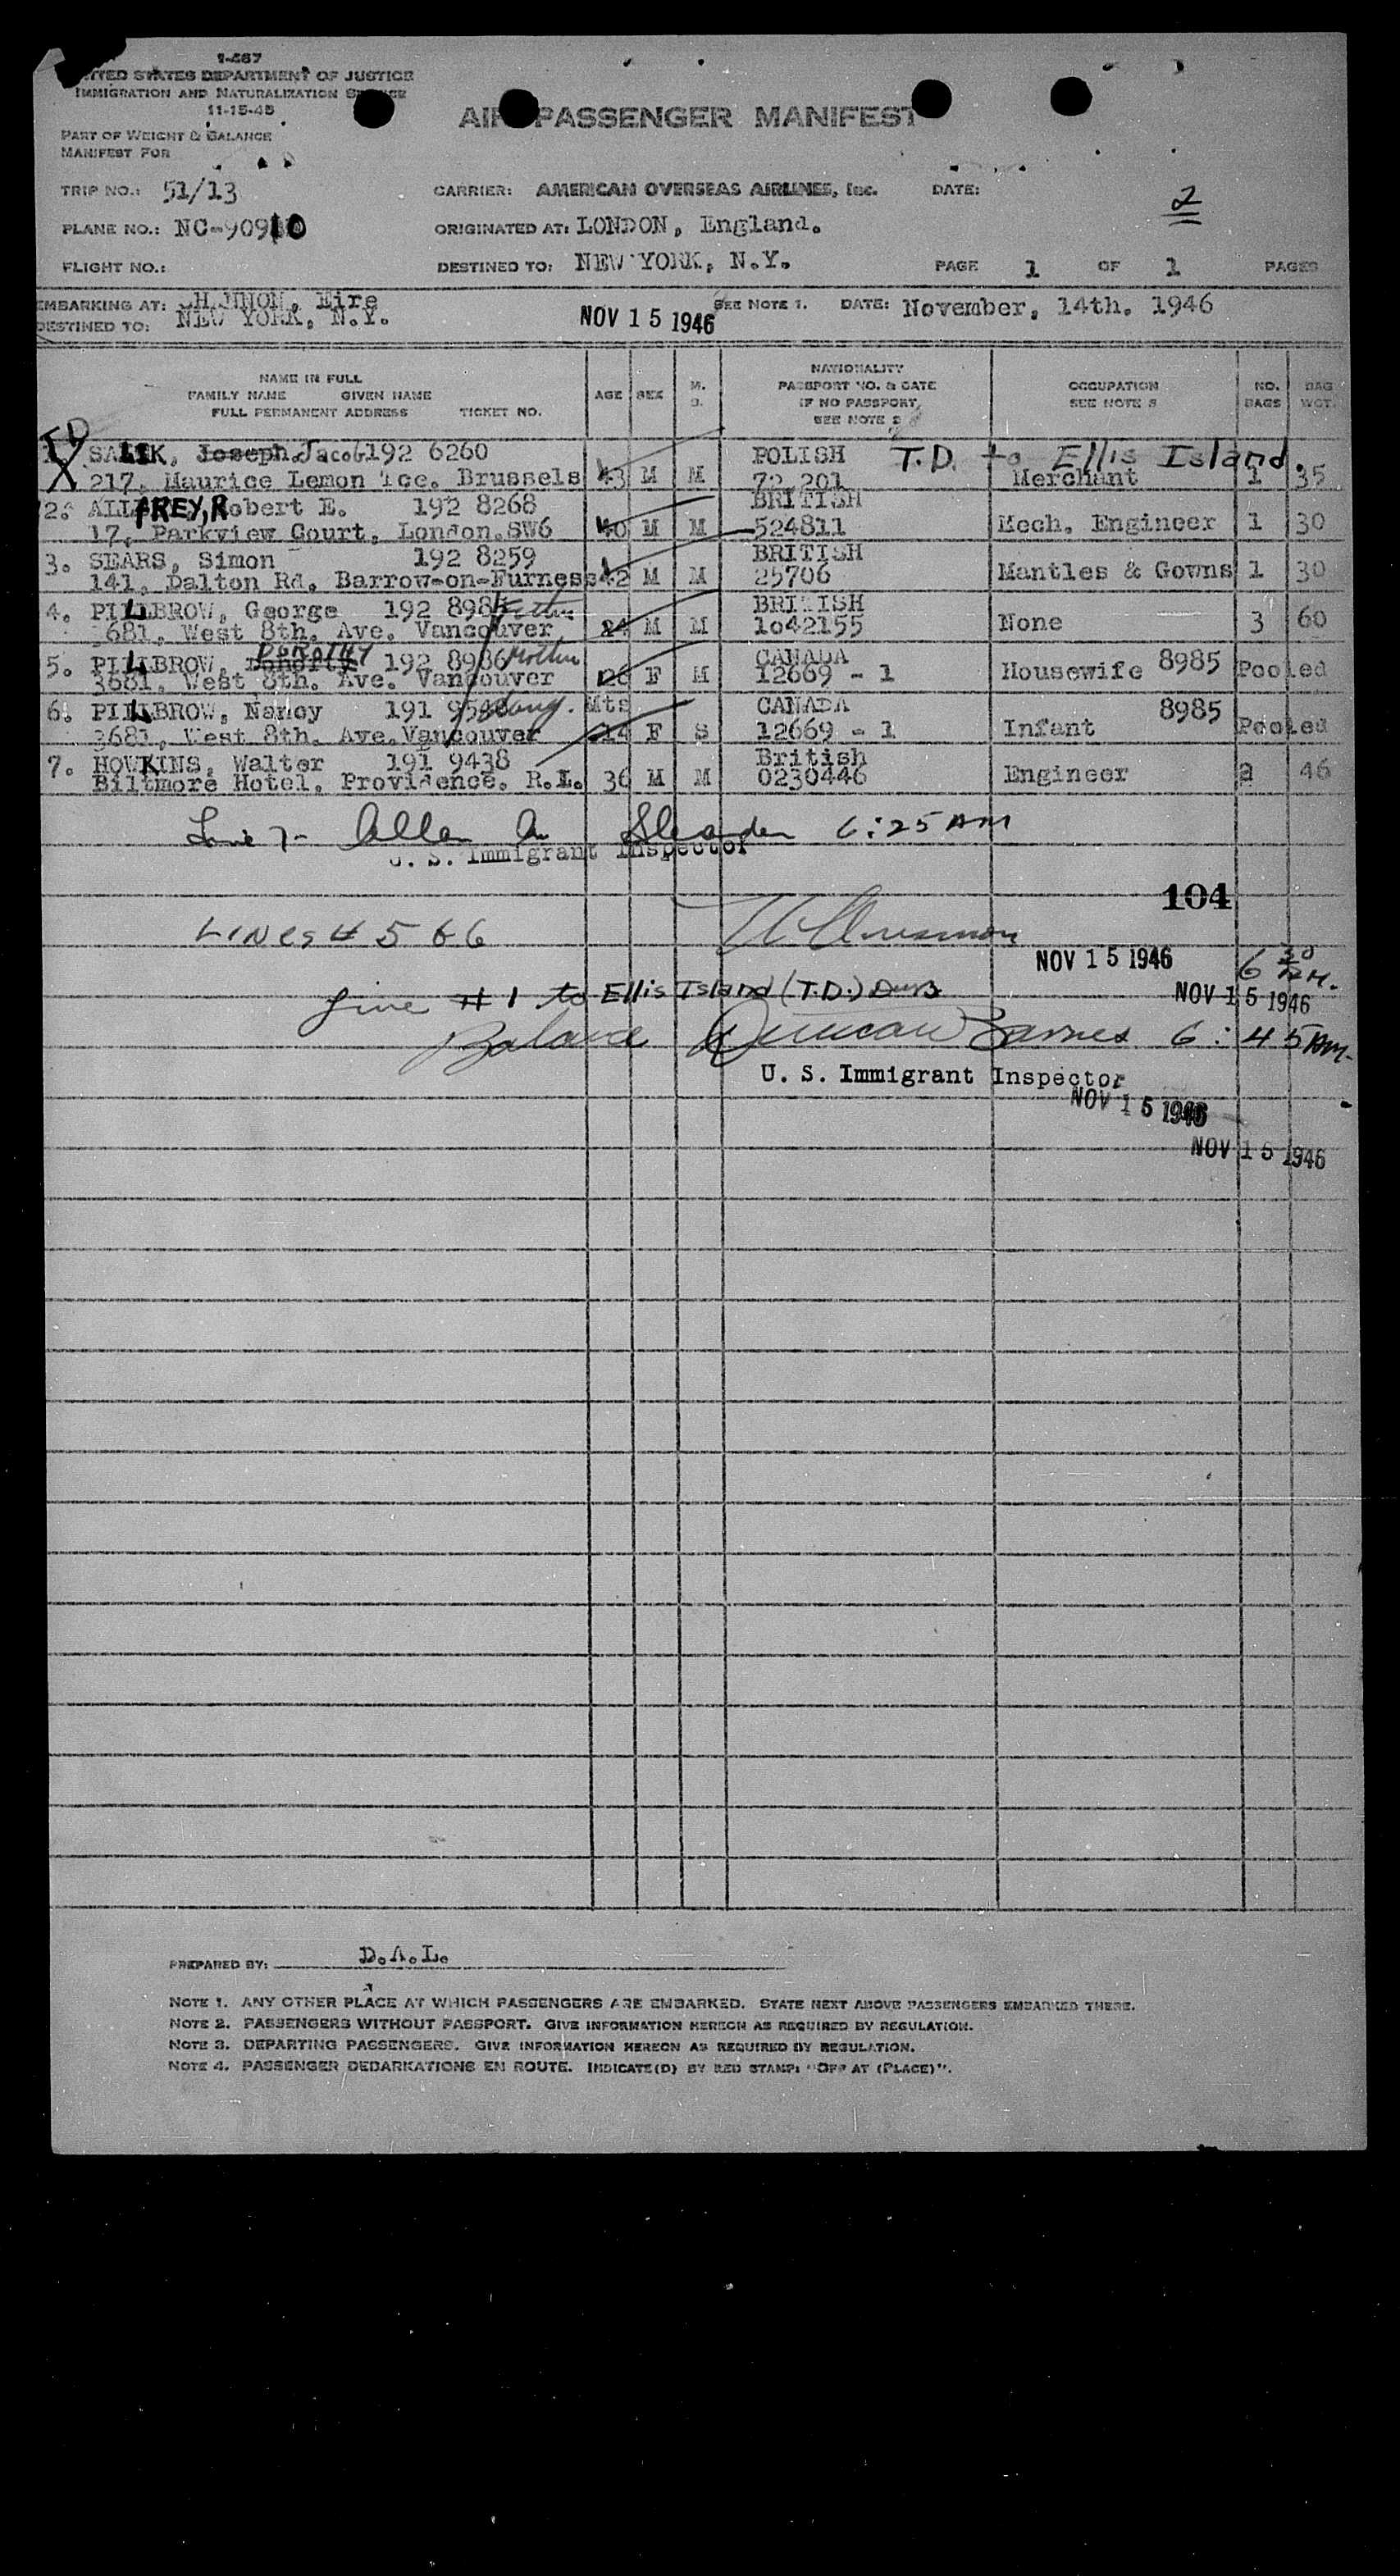 1-467
UNITED STATES DEPARTMENT OF JUSTICE
IMMIGRATION AND NATURALIZATION SERVICE
11-15-45
AIR PASSENGER MANIFEST
PART OF WEIGHT & BALANCE
MANIFEST FOR
TRIP NO.: 51/13 CARRIER: AMERICAN OVERSEAS AIRLINES, Inc. DATE: 2
PLANE NO.: NC-90910 ORIGINATED AT: LONDON, England.
FLIGHT NO.: DESTINED TO: NEW YORK, N.Y. PAGE 1 OF 1 PAGES
EMBARKING AT: Eire SEE NOTE 1. DATE: November, 14th. 1946
DESTINED TO: NEW YORK, N.Y. NOV 15 1946
NAME IN FULL
FAMILY NAME GIVEN NAME
FULL PERMANENT ADDRESS TICKET NO.
AGE SEX M. S.
NATIONALITY
PASSPORT NO. & DATE
IF NO PASSPORT,
SEE NOTE 2
OCCUPATION
SEE NOTE 3
NO. BAGS
BAG WGT.
TD
X SALIK, Joseph Jacob 192 6260 POLISH T.D. to Ellis Island.
217, Maurice Lemon Tce. Brussels 43 M M 72 201 Merchant 1 35
2. ALLFREY, Robert E. 192 8268 BRITISH
17, Parkview Court, London.SW6 40 M M 524811 Mech. Engineer 1 30
3. SEARS, Simon 192 8259 BRITISH
141, Dalton Rd. Barrow-on-Furness 42 M M 25706 Mantles & Gowns 1 30
4. PILLBROW, George 192 8985 Father BRITISH
3681, West 8th. Ave. Vancouver, M M 1042155 None 3 60
DOROTHY
5. PILLBROW, Doherty 192 8986 Mother CANADA 8985
3681, West 8th. Ave. Vancouver 26 F M 12669 - 1 Housewife Pooled
6. PILLBROW, Nancy 191 9548 Daug. Mts CANADA 8985
3681, West 8th. Ave. Vancouver 14 F S 12669 - 1 Infant Pooled
7. HOWKINS, Walter 191 9438 British
Biltmore Hotel, Providence. R.I. 36 M M 0230446 Engineer 2 46
Line 7- Allen 6:25 AM
U. S. Immigrant Inspector
104
LINES # 5 & 6
NOV 15 1946 6 30 AM.
Line # 1 to Ellis Island (T.D.) NOV 15 1946
Balance Duncan Barnes 6:45 AM.
U. S. Immigrant Inspector
NOV 15 1946
NOV 15 1946
PREPARED BY: D.A.L.
NOTE 1. ANY OTHER PLACE AT WHICH PASSENGERS ARE EMBARKED. STATE NEXT ABOVE PASSENGERS EMBARKED THERE.
NOTE 2. PASSENGERS WITHOUT PASSPORT. GIVE INFORMATION HEREON AS REQUIRED BY REGULATION.
NOTE 3. DEPARTING PASSENGERS. GIVE INFORMATION HEREON AS REQUIRED BY REGULATION.
NOTE 4. PASSENGER DEBARKATIONS EN ROUTE. INDICATE(D) BY RED STAMP: "OFF AT (PLACE)".